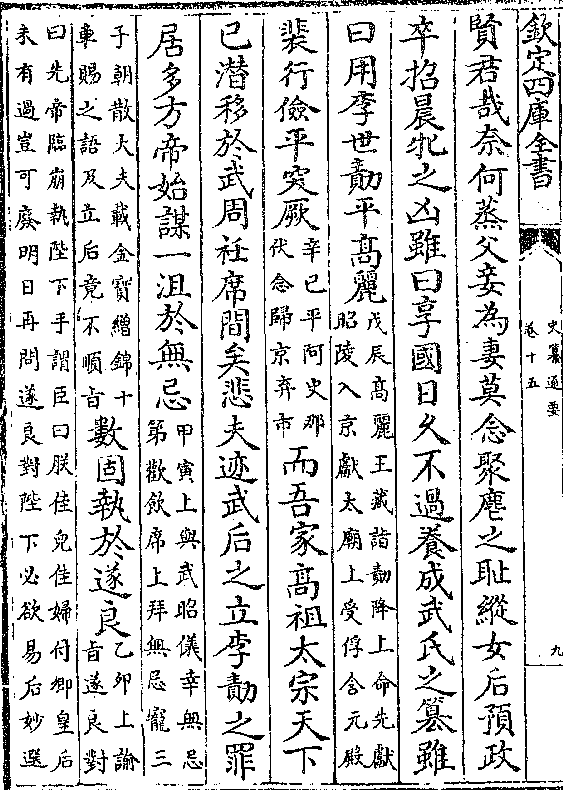 欽定四庫全書
史纂通要
卷十五
九
賢君哉奈何蒸父妾為妻莫念聚麀之耻縱女后預政
卒招晨牝之凶雖曰享國日久不過養成武氏之簒雖
曰用李世勣平髙麗
戊辰髙麗王藏詣勣降上命先獻
昭陵入京獻太廟上受俘含元殿
裴行儉平突厥
辛已平阿史那
伏念歸京弃市
而吾家髙祖太宗天下
已潜移於武周袵席間矣悲夫迹武后之立李勣之罪
居多方帝始謀一沮於無忌
甲寅上與武昭儀幸無忌
第歡飲席上拜無忌寵三
子朝散大夫載金寳繒錦十
車賜之語及立后竟不順㫖
數固執於遂良
乙夘上諭
㫖遂良對
曰先帝臨崩執陛下手謂臣曰朕佳兒佳婦付卿皇后
未有過豈可廢明日再問遂良對陛下必欲易后妙選